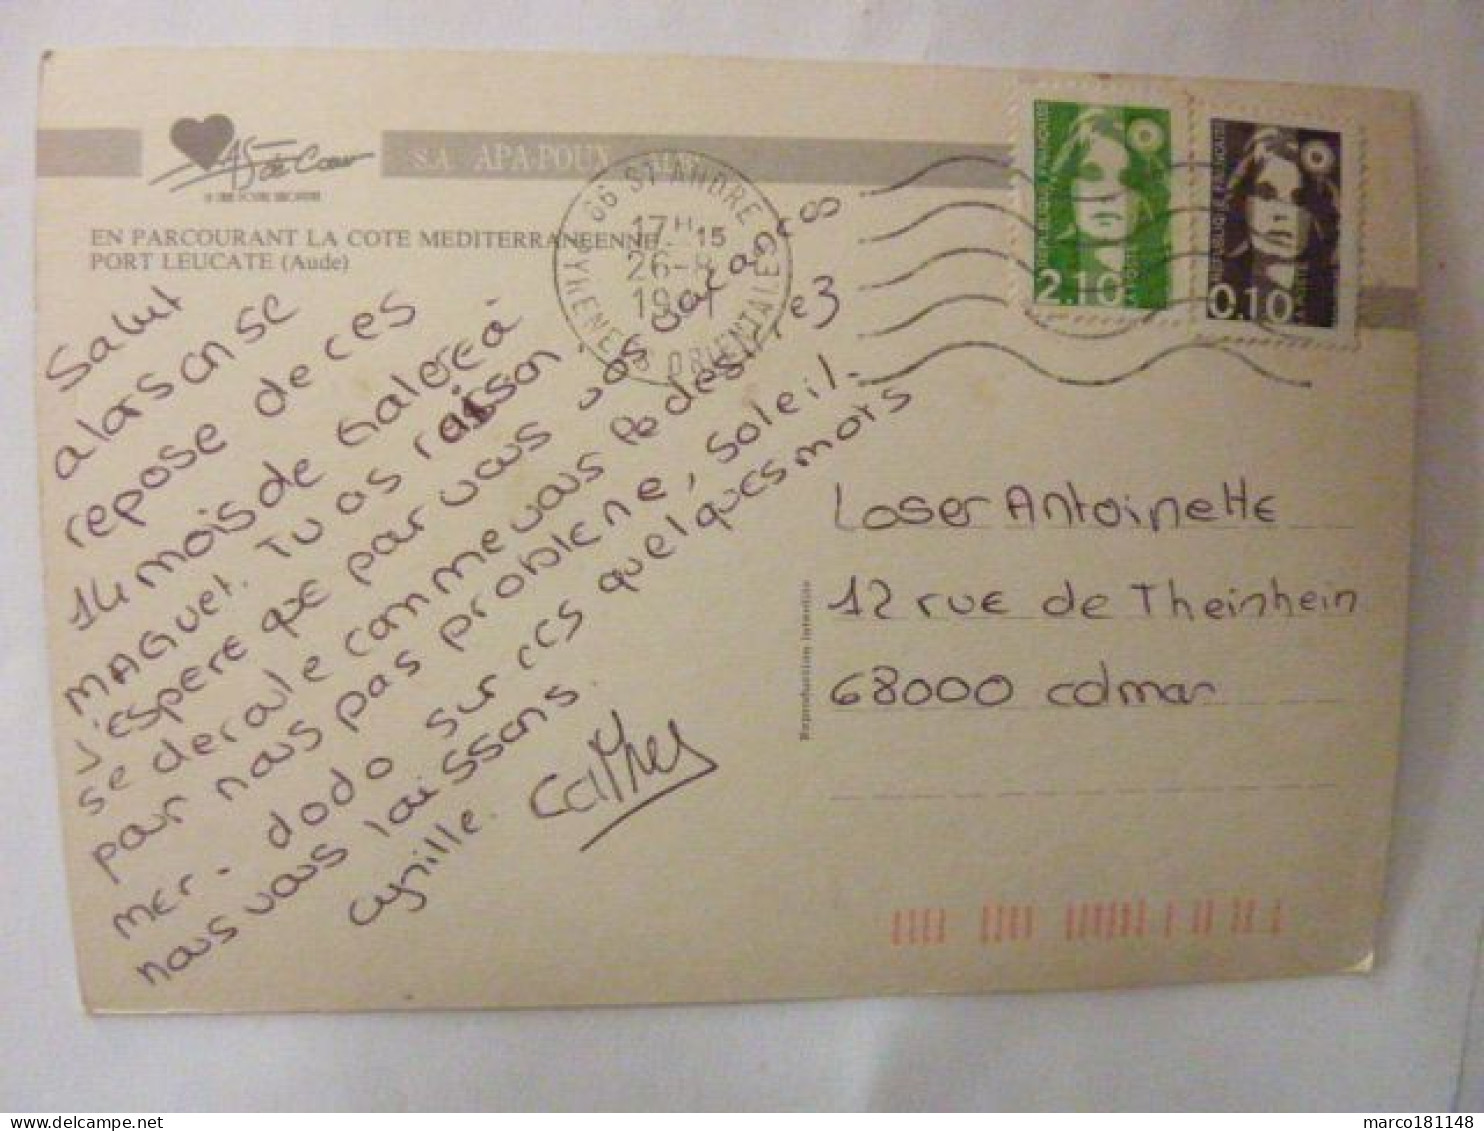 As de Cœur
S.A APA-POUX
EN PARCOURANT LA COTE MEDITERRANEENNE
PORT LEUCATE (Aude)
66 ST ANDRE
17H 15
26-8
19
PYRENEES ORIENTALES
REPUBLIQUE FRANÇAISE
2,10
LA POSTE
REPUBLIQUE FRANÇAISE
0,10
LA POSTE
Salut
alors on se
repose de ces
14 mois de Galère à
MAGuet. Tu as raison,
J'ESPERE que pour vous vos vacances
se deroule comme vous le desirez
pour nous pas problene, soleil.
mer - dodo sur ces quelques mots
nous vous laissons.
Cyrille. Cathy
Loser Antoinette
12 rue de Theinhein
68000 colmar
Reproduction interdite
marco181148